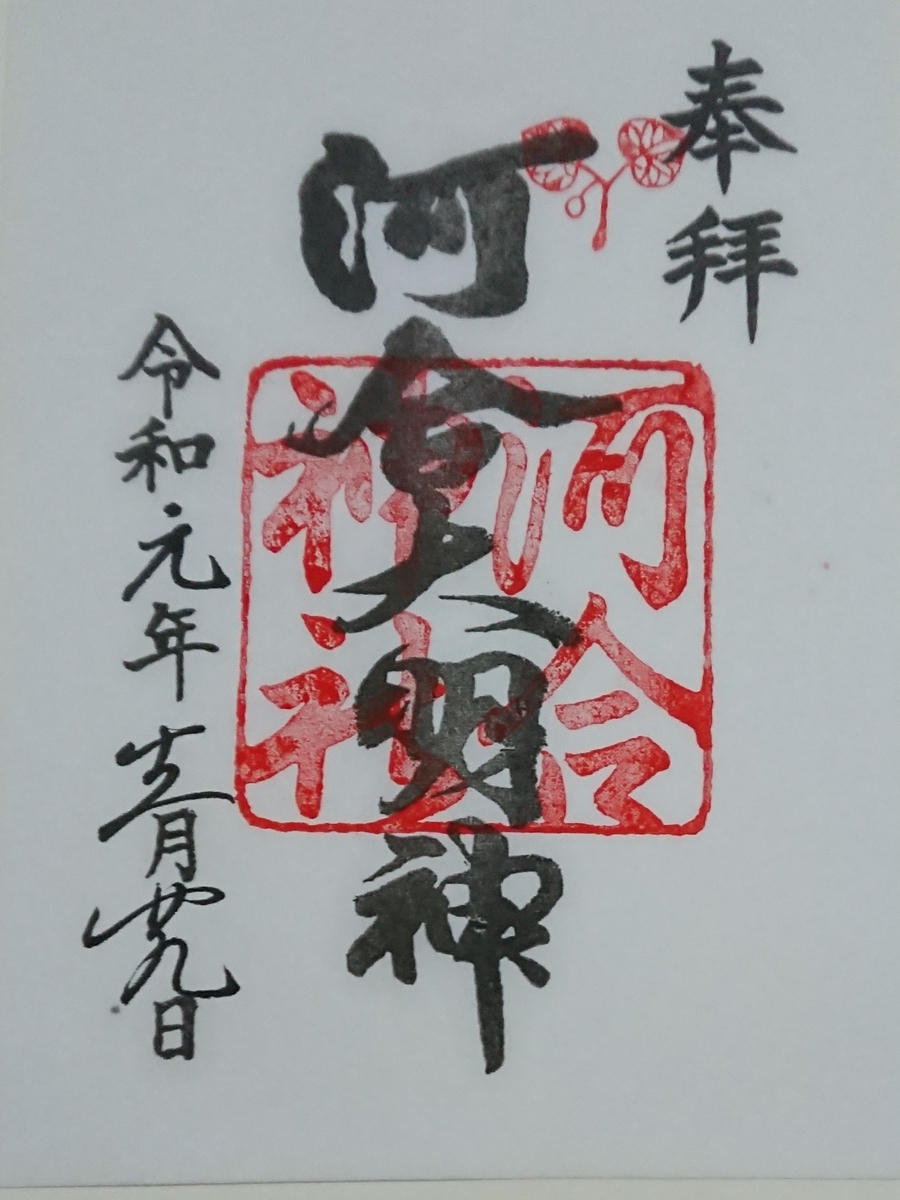 奉拝
河會大明神
河合
神社
令和元年十二月廿九日